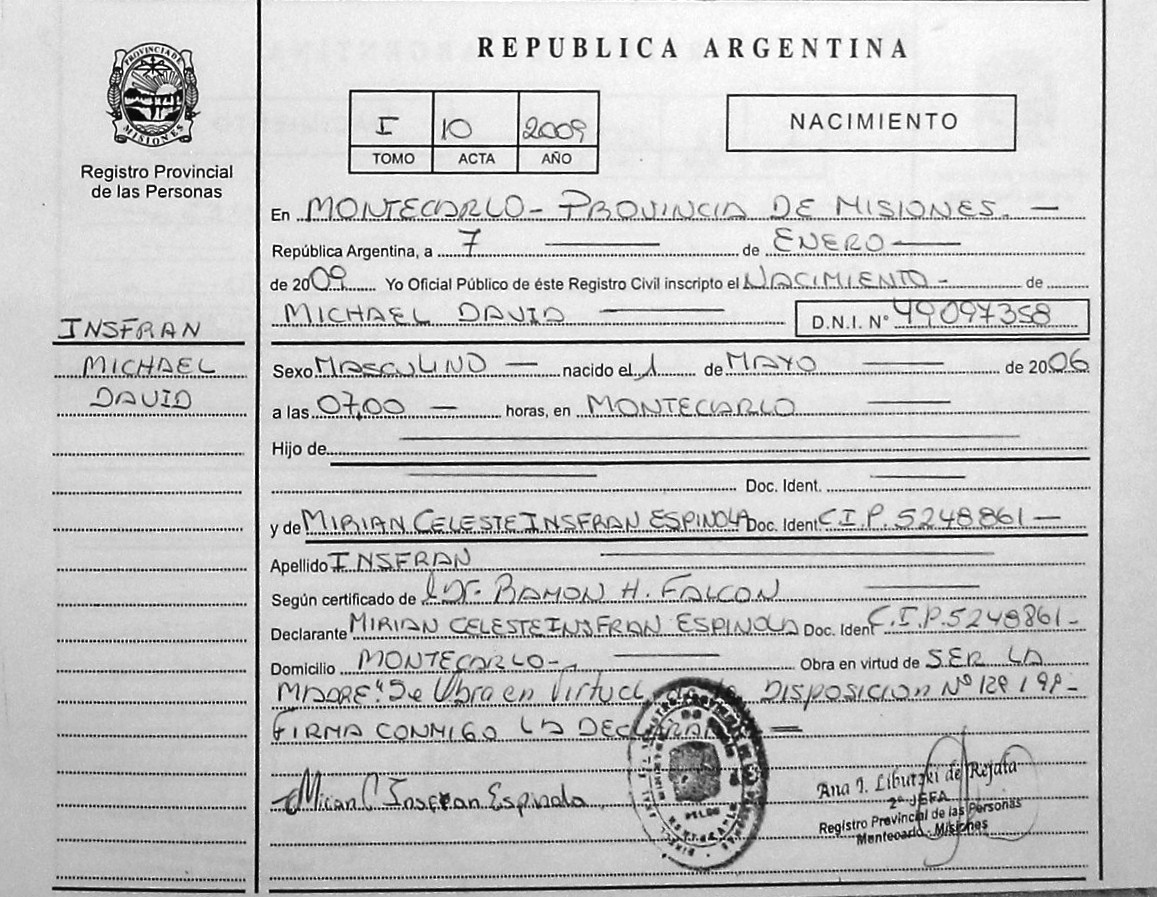 PROVINCIA DE
MISIONES
Registro Provincial
de las Personas
REPUBLICA ARGENTINA
I 10 2009
TOMO ACTA AÑO
NACIMIENTO
En MONTECARLO - PROVINCIA DE MISIONES. —
República Argentina, a 7 — de ENERO —
de 2009 Yo Oficial Público de éste Registro Civil inscripto el NACIMIENTO - de
MICHAEL DAVID — D.N.I. N° 49097358
INSFRAN
MICHAEL
DAVID
Sexo MASCULINO — nacido el 1 de MAYO — de 2006
a las 07,00 — horas, en MONTECARLO —
Hijo de —
— Doc. Ident. —
y de MIRIAN CELESTE INSFRAN ESPINOLA Doc. Ident C.I.P. 5248861 —
Apellido INSFRAN —
Según certificado de Dr. RAMON H. FALCON —
Declarante MIRIAN CELESTE INSFRAN ESPINOLA Doc. Ident C.I.P. 5248861 -
Domicilio MONTECARLO - — Obra en virtud de SER LA
MADRE". Se Obra en Virtud DISPOSICION N° 129/99 -
FIRMA CONMIGO LA DECLARAN
Mirian C Insfran Espinola
Ana I. Liburski de Rejala
2° JEFA
Registro Provincial de las Personas
Montecarlo - Misiones